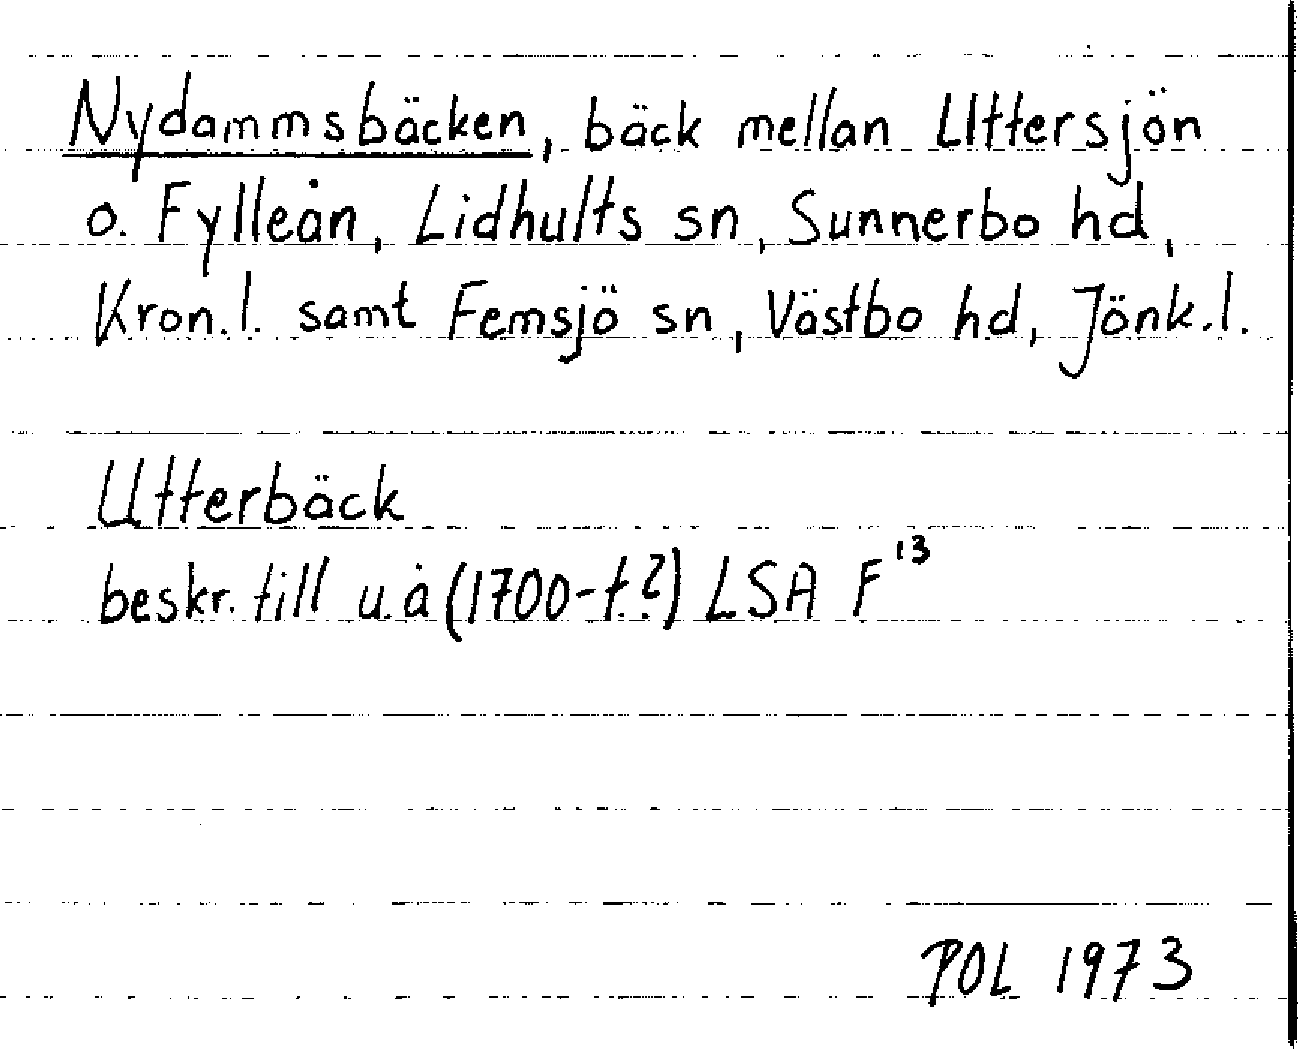 Nydammsbäcken, bäck mellan Uttersjön
o. Fylleån, Lidhults sn, Sunnerbo hd,
Kron.l. samt Femsjö sn, Västbo hd, Jönk.l.
Utterbäck
beskr. till u.å (1700-t.?) LSA F¹³
POL 1973